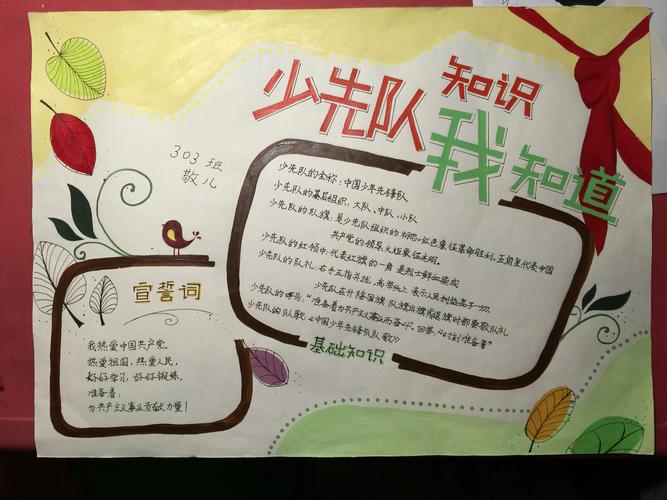 少先队知识
我知道
303班
敬儿
少先队的全称：中国少年先锋队
少先队的基层组织：大队、中队、小队
少先队的队旗：是少先队组织的标志，红色象征革命胜利，五角星代表中国
共产党的领导，火炬象征光明。
少先队的红领巾：代表红旗的一角 是烈士鲜血染成
少先队的队礼：右手五指并拢，高举头上 表示人民利益高于一切。
少先队在升降国旗 队旗出旗或退旗时都要敬队礼
少先队的呼号："准备着为共产主义事业而奋斗，回答："时刻准备着"
少先队的队歌《中国少年先锋队队歌》
基础知识
宣誓词
我热爱中国共产党，
热爱祖国，热爱人民，
好好学习，好好锻炼，
准备着：
为共产主义事业贡献力量！